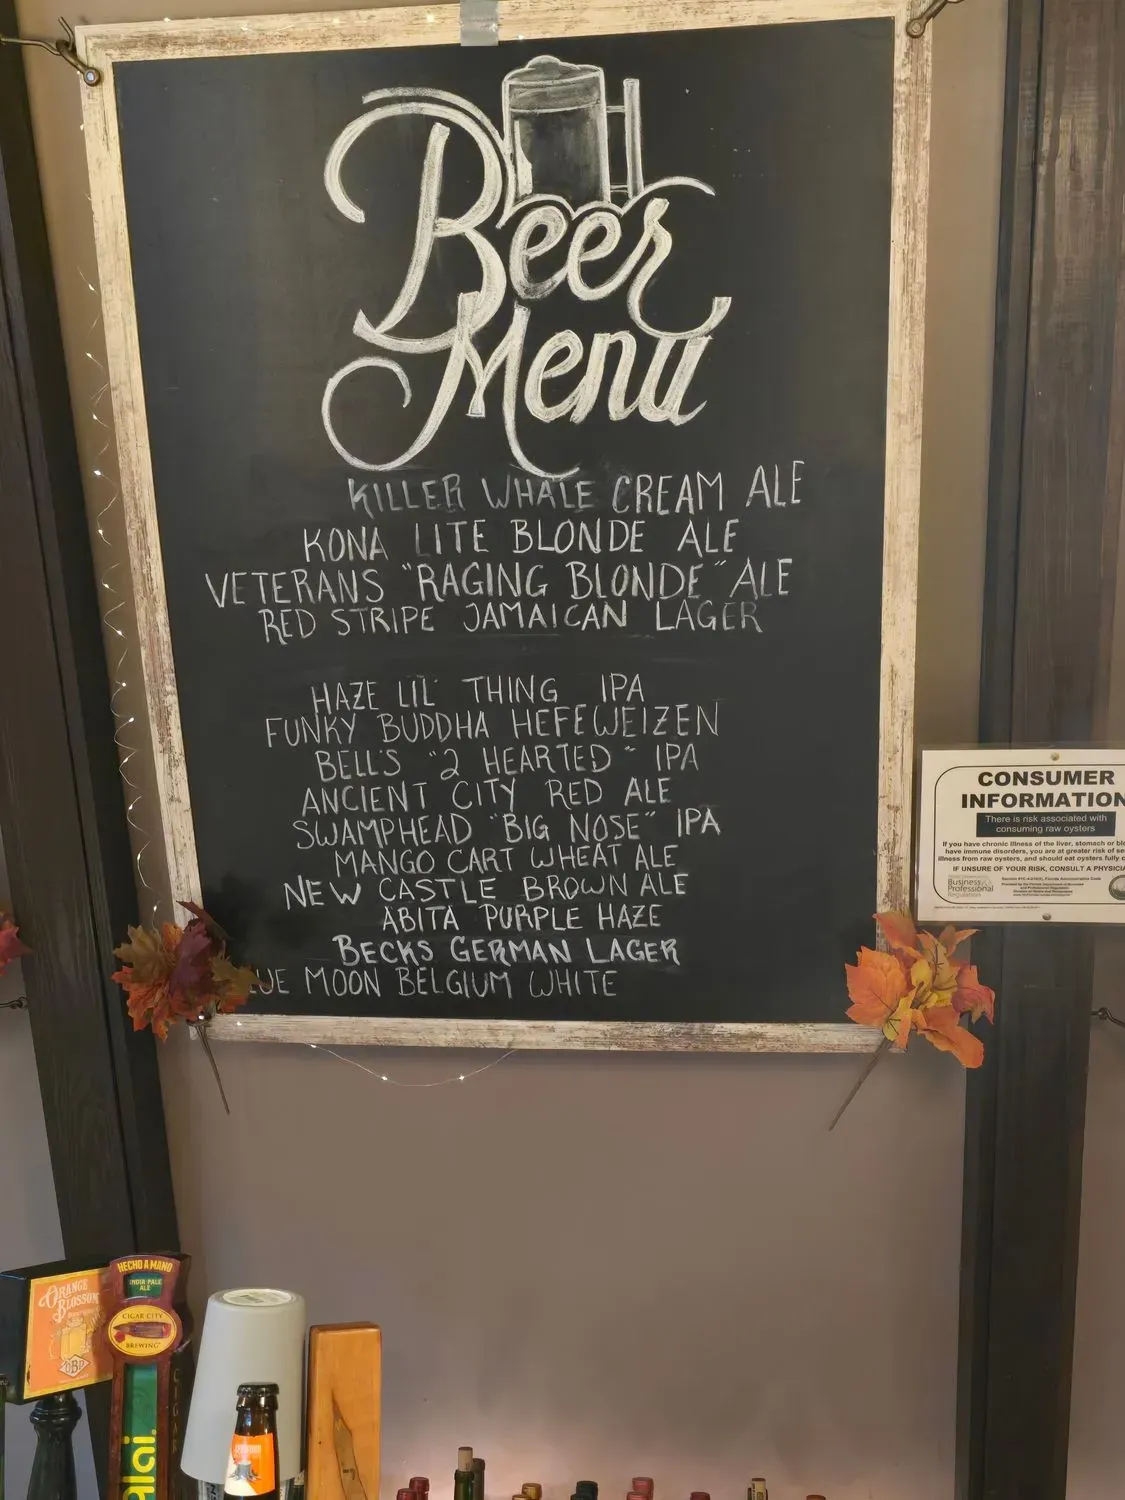 Beer
Menu
KILLER WHALE CREAM ALE
KONA LITE BLONDE ALE
VETERANS "RAGING BLONDE" ALE
RED STRIPE JAMAICAN LAGER
HAZE LIL' THING IPA
FUNKY BUDDHA HEFEWEIZEN
BELL'S "2 HEARTED" IPA
ANCIENT CITY RED ALE
SWAMPHEAD "BIG NOSE" IPA
MANGO CART WHEAT ALE
NEW CASTLE BROWN ALE
ABITA PURPLE HAZE
BECKS GERMAN LAGER
UE MOON BELGIUM WHITE
CONSUMER
INFORMATION
There is risk associated with
consuming raw oysters
If you have chronic illness of the liver, stomach or
have immune disorders, you are at greater risk of
illness from raw oysters, and should eat oysters fully
IF UNSURE OF YOUR RISK, CONSULT A
Business
Professional
Regulation
ORANGE
BLOSSOM
OBP
HECHO A MANO
INDIA PALE
ALE
CIGAR CITY
BREWING
alai.